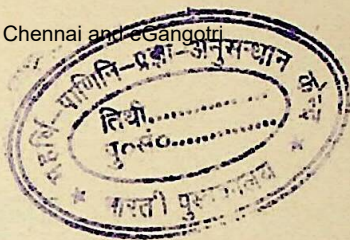 Chennai and eGangotri
महर्षि-पाणिनि-प्रज्ञा-अनुसन्धान केन्द्र
तिथी..................
पु०सं०..................
* भारती पुस्तकालय *